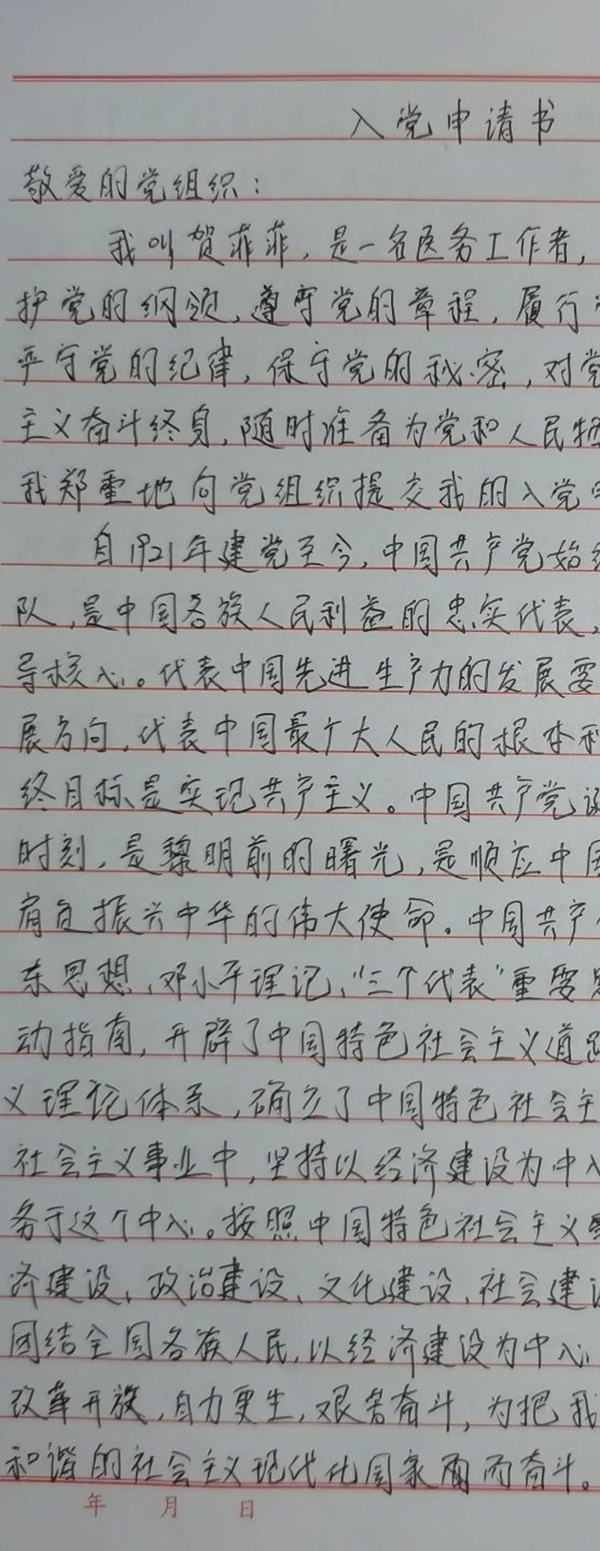 入党申请书
敬爱的党组织：
我叫贺菲菲，是一名医务工作者，
护党的纲领，遵守党的章程，履行
严守党的纪律，保守党的秘密，对党
主义奋斗终身，随时准备为党和人民牺
我郑重地向党组织提交我的入党
自1921年建党至今，中国共产党始终
队，是中国各族人民利益的忠实代表，
导核心。代表中国先进生产力的发展要
展方向，代表中国最广大人民的根本利
终目标是实现共产主义。中国共产党诞
时刻，是黎明前的曙光，是顺应中国
肩负振兴中华的伟大使命。中国共产
东思想，邓小平理论，“三个代表”重要思
动指南，开辟了中国特色社会主义道路
义理论体系，确立了中国特色社会主
社会主义事业中，坚持以经济建设为中心
务于这个中心。按照中国特色社会主义
济建设、政治建设、文化建设、社会建设
团结全国各族人民，以经济建设为中心
改革开放，自力更生，艰苦奋斗，为把我
和谐的社会主义现代化国家而奋斗。
年 月 日